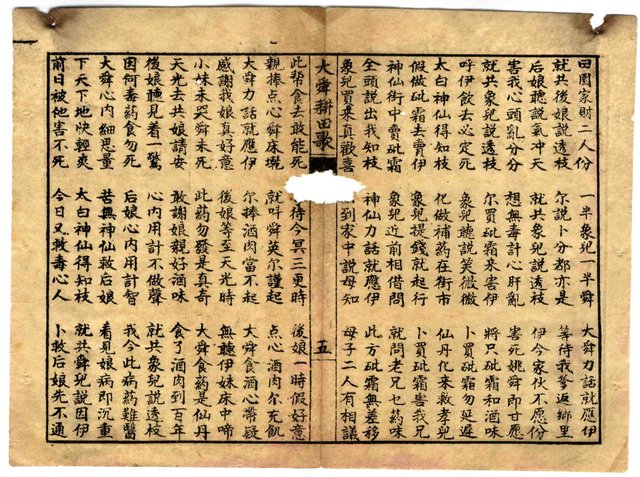 田園家財二人份 一半象兒一半舜 大舜力話就應伊
就共後娘說透枝 尔說卜分都亦是 等待我爹返鄉里
后娘聽說氣冲天 就共象兒說透枝 伊今家伙不愿份
害我心頭亂分分 想無毒計心肝亂 害死姚舜即甘愿
就共象兒說透枝 尔買砒霜來害伊 將只砒霜和酒味
呼伊飲去必定死 象兒聽說笑微微 卜買砒霜勿延遲
太白神仙得知枝 化做補药在街市 仙丹化來救孝兒
假做砒霜去賣伊 象兒提錢就起行 卜買砒霜害我兄
神仙街中賣砒霜 象兒近前相借問 就問老兄乜药味
全頭說出我知枝 神仙力話就應伊 此方砒霜無差移
象兒買來真歡喜 到家中說母知 母子二人有相議
大舜耕田歌 五
此帮食去敢能死 待今冥三更時 後娘一時假好意
親捧点心舜床墘 就叫舜英尔謹起 点心酒肉尔充飢
大舜力話就應伊 尔捧酒肉當不起 大舜食酒心帶疑
感謝我娘真好意 後娘等至天光時 無聽伊妹床中啼
小妹未哭舜未死 此药勿發是真奇 大舜食药是仙丹
天光去共娘請安 敢謝娘親好酒味 食了酒肉到百年
後娘聽見着一驚 心内用計不做聲 就共象兒說透枝
因何毒药食勿死 后娘心内用計智 我今此病药難醫
大舜心内細思量 苦無神仙救后娘 看見娘病即沉重
下天下地快輕爽 太白神仙得知枝 就共舜兒說因伊
前日被他害不死 今日又救毒心人 卜救后娘先不通